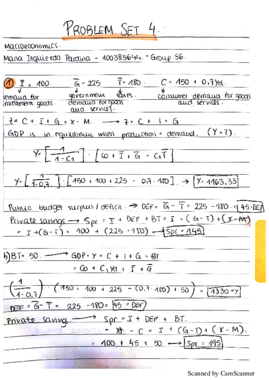 PROBLEM SET 4.
Macroeconomics.
Maria Izquierdo Paulina - 100385644. Group 56.
① I = 100 G = 225 T = 180 C = 150 + 0,7Yd
demand for investment goods
government demand for goods and services.
taxes.
consumer demand for goods and services.
Z = C + I + G + X - M. → Z = C + I + G
GDP is in equilibrium when production = demand. (Y = Z).
Y = [1 / 1 - C1] · [C0 + I + G - C1T]
Y = [1 / 1 - 0,7] · [150 + 100 + 225 - 0.7 · 180]. → Y = 1163,33
Public budget surplus / deficit. → DEF = G - T = 225 - 180 = 45 = DEF
Private savings → Spr = I + DEF + BT = I + (G - T) + (X - M)
= I + (G - T) = 100 + (225 - 180) → Spr = 145
b) BT = 50. → GDP = Y = C + I + G + BT
= C0 + C1Yd + I + G
(1 / 1 - 0,7) · (150 + 100 + 225 - (0.7 · 180) + 50) = 1330 = Y
DEF = G - T = 225 - 180 = 45 = DEF
Private saving → Spr = I + DEF + BT.
= Yd - C = I + (G - T) + (X - M).
= 100 + 45 + 50 → Spr = 195
Scanned by CamScanner